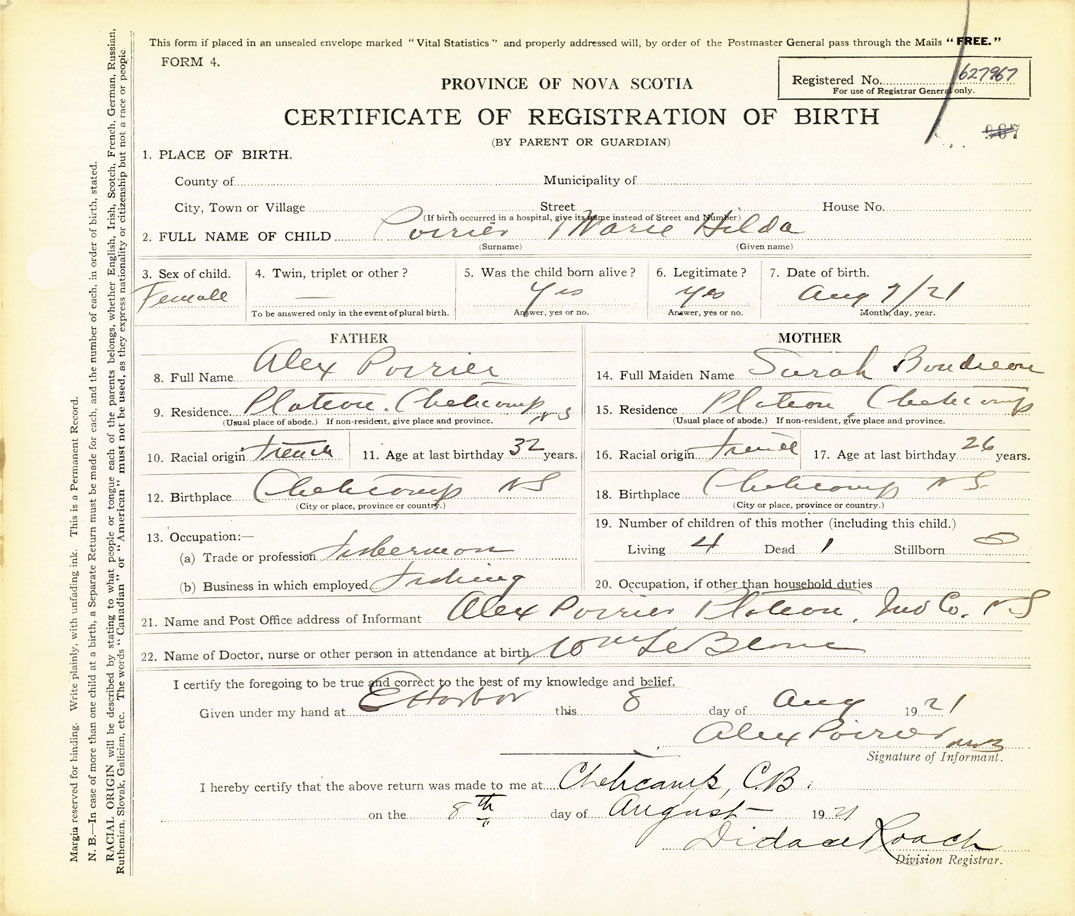 This form if placed in an unsealed envelope marked "Vital Statistics" and properly addressed will, by order of the Postmaster General pass through the Mails "FREE."
FORM 4.
Registered No. 627967
For use of Registrar General only.
PROVINCE OF NOVA SCOTIA
CERTIFICATE OF REGISTRATION OF BIRTH
(BY PARENT OR GUARDIAN)
1. PLACE OF BIRTH.
County of Municipality of
City, Town or Village Street House No.
(If birth occurred in a hospital, give its name instead of Street and Number)
2. FULL NAME OF CHILD Poirier Marie Hilda
(Surname) (Given name)
3. Sex of child. 4. Twin, triplet or other? 5. Was the child born alive? 6. Legitimate? 7. Date of birth.
Female — Yes Yes Aug 7/21
To be answered only in the event of plural birth. Answer, yes or no. Answer, yes or no. Month, day, year.
FATHER MOTHER
8. Full Name Alex Poirier 14. Full Maiden Name Sarah Boudreau
9. Residence Plateau. Cheticamp NS 15. Residence Plateau, Cheticamp
(Usual place of abode.) If non-resident, give place and province. (Usual place of abode.) If non-resident, give place and province.
10. Racial origin French 11. Age at last birthday 32 years. 16. Racial origin French 17. Age at last birthday 26 years.
12. Birthplace Cheticamp NS 18. Birthplace Cheticamp N S.
(City or place, province or country.) (City or place, province or country.)
13. Occupation:— 19. Number of children of this mother (including this child.)
(a) Trade or profession Fisherman Living 4 Dead 1 Stillborn 0
(b) Business in which employed Fishing 20. Occupation, if other than household duties
21. Name and Post Office address of Informant Alex Poirier Plateau, Inv Co. NS
22. Name of Doctor, nurse or other person in attendance at birth Wm Le Blanc
I certify the foregoing to be true and correct to the best of my knowledge and belief.
Given under my hand at E Harbor this 8 day of Aug 1921
Alex Poirier
Signature of Informant.
I hereby certify that the above return was made to me at Cheticamp, C.B.
on the 8th day of August 1921
Didace Roach
Division Registrar.
Margin reserved for binding. Write plainly, with unfading ink. This is a Permanent Record.
N. B.—In case of more than one child at a birth, a Separate Return must be made for each, and the number of each, in order of birth, stated.
RACIAL ORIGIN will be described by stating to what people or tongue each of the parents belongs, whether English, Irish, Scotch, French, German, Russian,
Ruthenian, Slovak, Galician, etc. The words "Canadian" or "American" must not be used, as they express nationality or citizenship but not a race or people